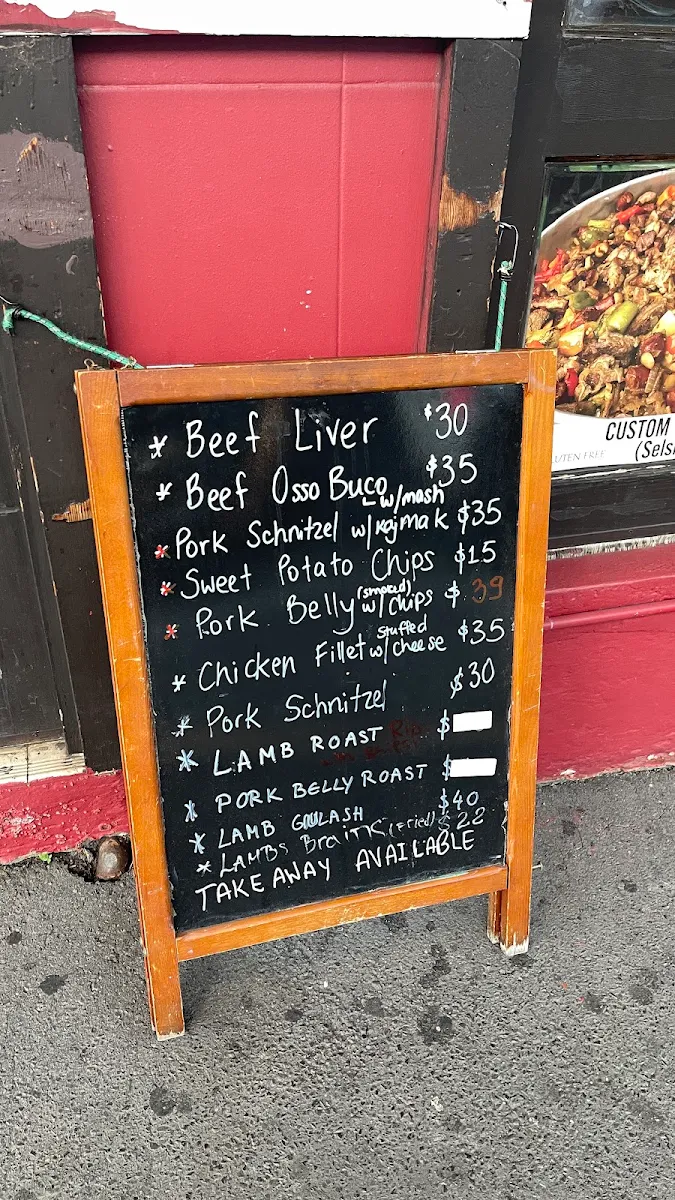 * Beef Liver $30
* Beef Osso Buco w/mash $35
* Pork Schnitzel w/Kajmak $35
* Sweet Potato Chips $15
* Pork Belly (smoked) w/Chips $ 39
* Chicken Fillet stuffed w/cheese $35
* Pork Schnitzel $30
* LAMB ROAST $
* PORK BELLY ROAST $
* LAMB GOULASH $40
* LAMBS Brain (fried) $28
TAKE AWAY AVAILABLE
CUSTOM
UTEN FREE
(Sels